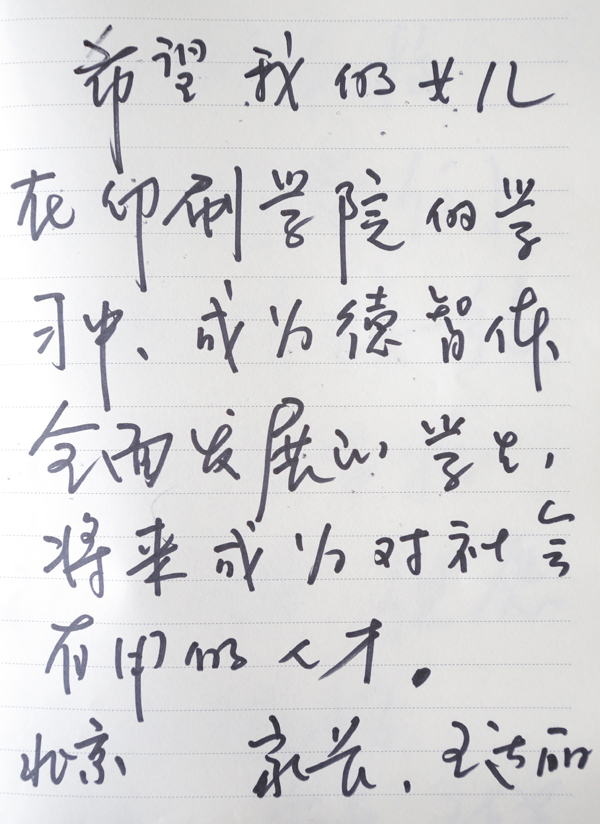 希望我的女儿
在印刷学院的学
习中、成为德智体、
全面发展的学生,
将来成为对社会
有用的人才。
北京 家长、王 丽